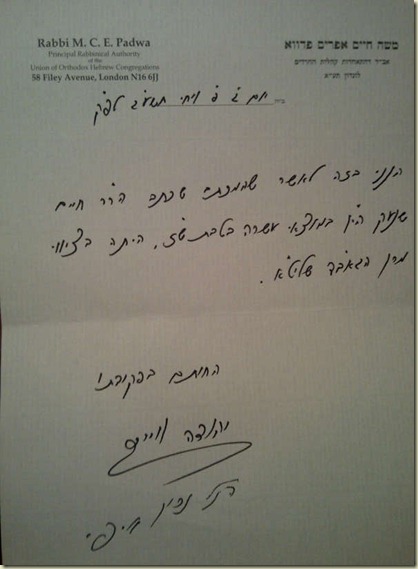 Rabbi M. C. E. Padwa
Principal Rabbinical Authority
of the
Union of Orthodox Hebrew Congregations
58 Filey Avenue, London N16 6JJ
משה חיים אפרים פדווא
אב״ד דהתאחדות קהלות החרדים
לונדון תע״א
ב״ה יום ג' פ' ויחי תשע"ג לפ"ק
הנני בזה לאשר שהמכתב שכתב הר"ר חיים
הי"ו במוצאי עשרה בטבת היתה בציווי
מרן הגאב"ד שליט"א.
החותם בפקודתו
יהודה ווייס
הנ"ל